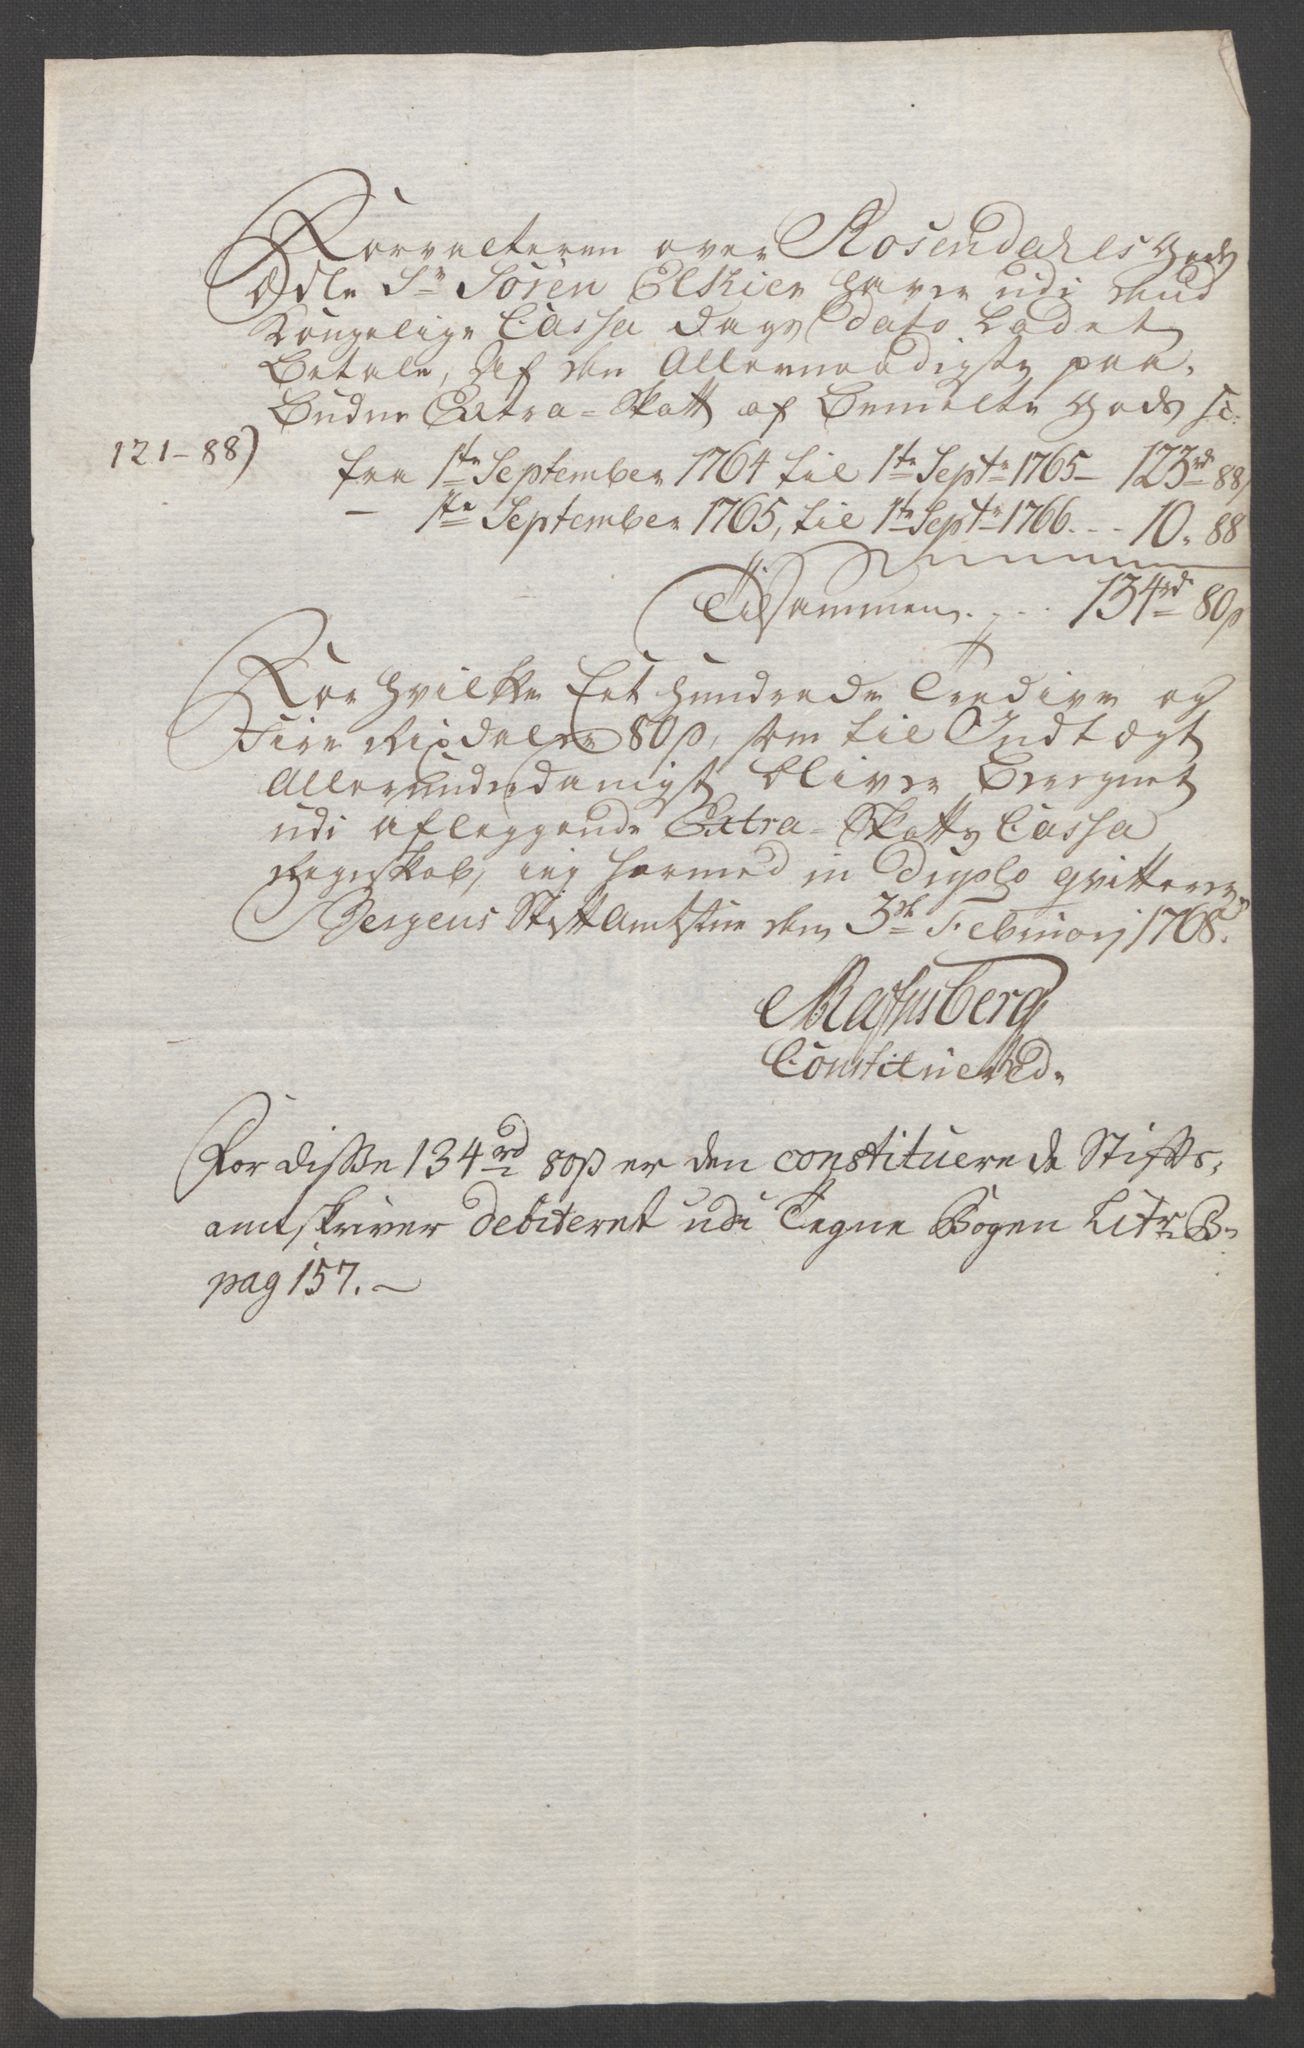 Forvalteren over Rosendahls Gods
Ædle Sr Søren Elskier haver udi den
Kongelige Cassa Dags Dato Ladet
Betale, Af den Allernaadigste paa-
budne Extra-Skatt af bemelte Gods sc:
121-88)
fra 1ste September 1764 til 1ste Septr 1765 - 123rd 88
- 1ste September 1765, til 1ste Septr 1766 . . . 10. 88
Tilsammen . . . 134rd 80ß
For hvilke Eet hundrede Tredive og
Fire Rixdaler 80ß, som til Indtægt
Allerunderdanigst bliver Beregnet
udi aflæggende Extra-Skatts Cassa
Regnskab, ieg hermed in duplo qvitterer
Bergens Stiftamtstue den 3de Februarij 1768.
Rafnsberg
Constituered.
For disse 134rd 80ß er den constituerede Stifts-
amtskriver debiteret udi Tegne Bogen Litr B.
pag 157. -